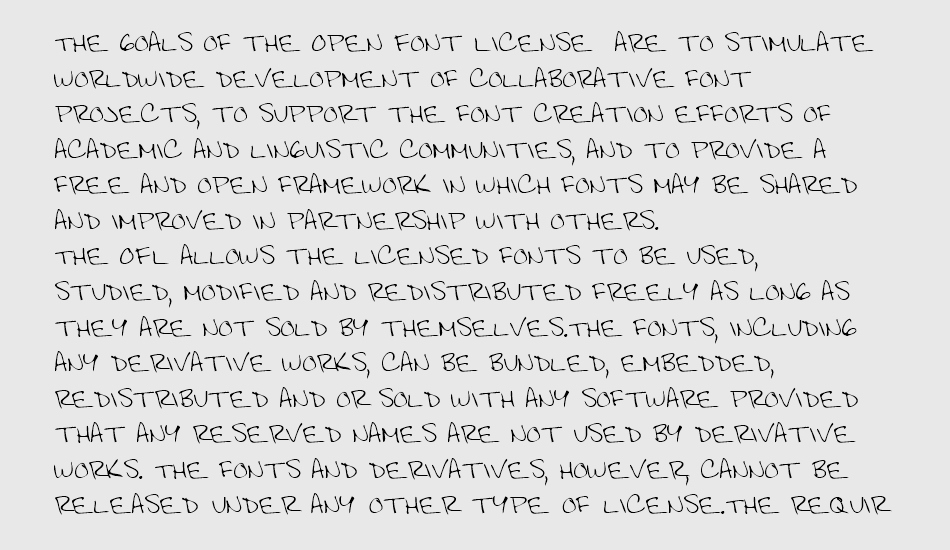 THE GOALS OF THE OPEN FONT LICENSE  ARE TO STIMULATE
WORLDWIDE DEVELOPMENT OF COLLABORATIVE FONT
PROJECTS, TO SUPPORT THE FONT CREATION EFFORTS OF
ACADEMIC AND LINGUISTIC COMMUNITIES, AND TO PROVIDE A
FREE AND OPEN FRAMEWORK IN WHICH FONTS MAY BE SHARED
AND IMPROVED IN PARTNERSHIP WITH OTHERS.
THE OFL ALLOWS THE LICENSED FONTS TO BE USED,
STUDIED, MODIFIED AND REDISTRIBUTED FREELY AS LONG AS
THEY ARE NOT SOLD BY THEMSELVES.THE FONTS, INCLUDING
ANY DERIVATIVE WORKS, CAN BE BUNDLED, EMBEDDED,
REDISTRIBUTED AND OR SOLD WITH ANY SOFTWARE PROVIDED
THAT ANY RESERVED NAMES ARE NOT USED BY DERIVATIVE
WORKS. THE FONTS AND DERIVATIVES, HOWEVER, CANNOT BE
RELEASED UNDER ANY OTHER TYPE OF LICENSE.THE REQUIR